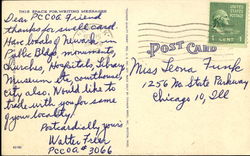 THIS SPACE FOR WRITING MESSAGES
Dear PCCOA Friend
thanks for swell card.
Have loads of Newark in
Public Bldgs, monuments,
Churches, Hospitals, Library,
Museum etc, courthouse,
city also. Would like to
trade with you for some
of your locality.
Postcardially yours
Walter
PCCOA #3066
POST CARD
Miss Leona Funk
1256 No State Parkway
Chicago 10, Ill